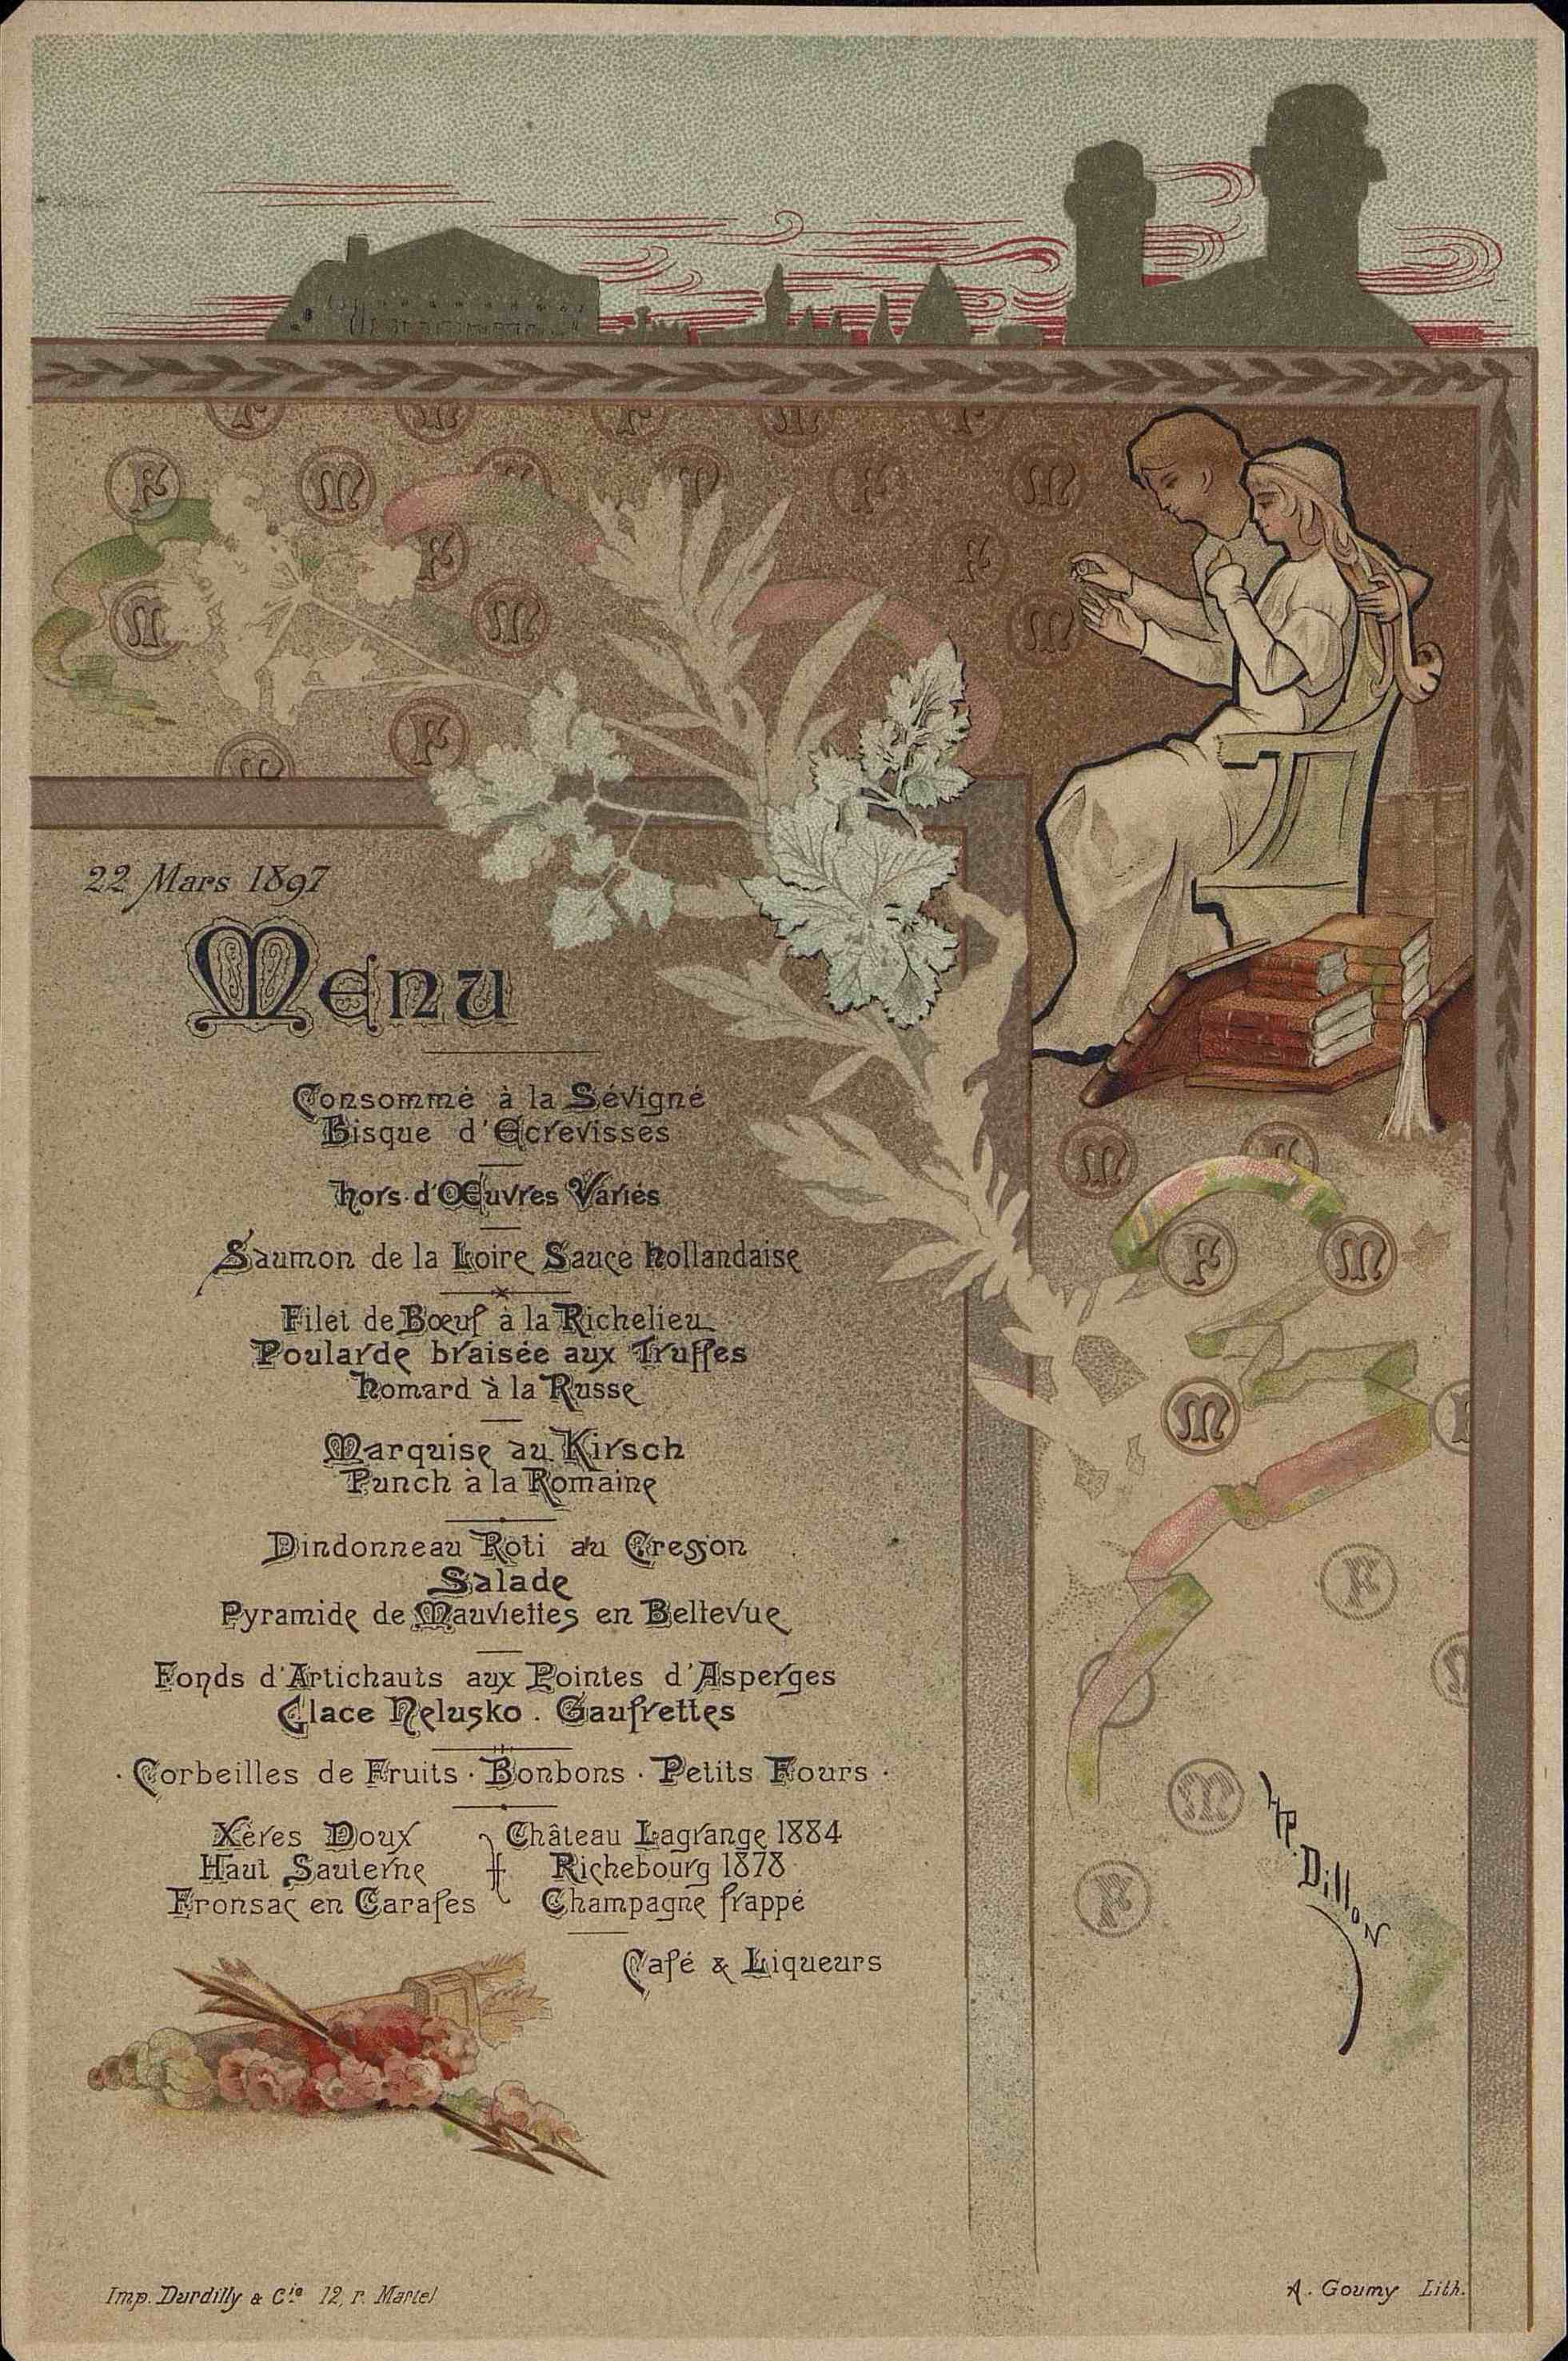 22 Mars 1897
Menu
Consommé à la Sévigné
Bisque d'Ecrevisses
Hors-d'Œuvres Variés
Saumon de la Loire Sauce Hollandaise
Filet de Bœuf à la Richelieu
Poularde braisée aux Truffes
Homard à la Russe
Marquise au Kirsch
Punch à la Romaine
Dindonneau Roti au Cresson
Salade
Pyramide de Mauviettes en Bellevue
Fonds d'Artichauts aux Pointes d'Asperges
Glace Nelusko . Gaufrettes
· Corbeilles de Fruits · Bonbons · Petits Fours ·
Xérès Doux
Haut Sauterne
Fronsac en Carafes
Château Lagrange 1884
Richebourg 1878
Champagne frappé
Café & Liqueurs
F M F M F
F M M F M
F F
M M M
F M
M F
F M
M F
F
M
M
F
HP. Dillon
Imp. Durdilly & Cie 12, r. Martel
A. Goumy Lith.